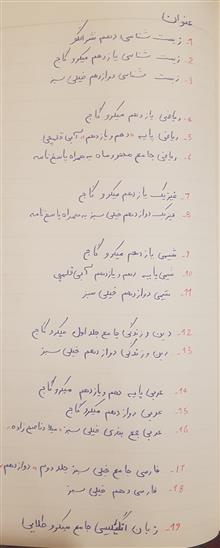 عنوان:
1. زیست شناسی دهم نشرالگو
2. زیست شناسی یازدهم میکرو گاج
3. زیست شناسی دوازدهم خیلی سبز
4. ریاضی یازدهم میکرو گاج
5. ریاضی پایه "دهم و یازدهم" آبی قلمچی
6. ریاضی جامع مهروماه به همراه پاسخ نامه
7. فیزیک یازدهم میکرو گاج
8. فیزیک دوازدهم خیلی سبز به همراه پاسخ نامه
9. شیمی یازدهم میکرو گاج
10. شیمی پایه دهم و یازدهم آبی قلمچی
11. شیمی دوازدهم خیلی سبز
12. دین و زندگی جامع جلد اول میکرو گاج
13. دین و زندگی دوازدهم خیلی سبز
14. عربی پایه دهم و یازدهم میکرو گاج
15. عربی دوازدهم میکرو گاج
16. عربی جمع بندی خیلی سبز
17. فارسی جامع خیلی سبز جلد دوم "دوازدهم"
18. فارسی دهم خیلی سبز
19. زبان انگلیسی جامع میکرو طلایی